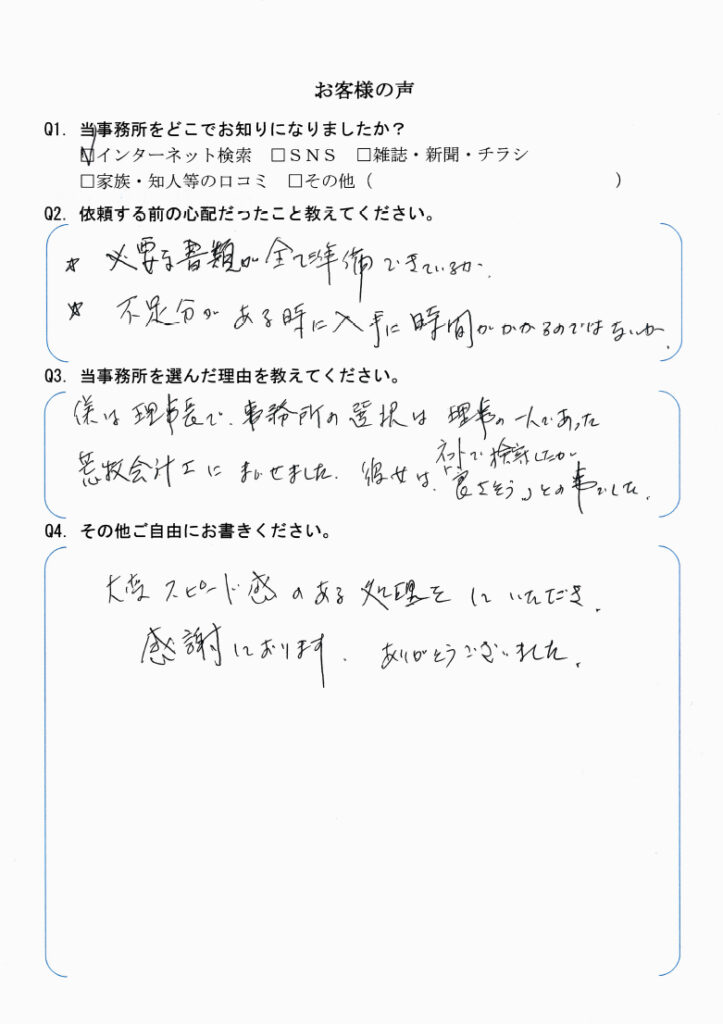 お客様の声
Q1. 当事務所をどこでお知りになりましたか？
☑インターネット検索 □ＳＮＳ □雑誌・新聞・チラシ
□家族・知人等の口コミ □その他（ ）
Q2. 依頼する前の心配だったこと教えてください。
☆ 必要な書類が全て準備できているか.
☆ 不足分がある時に入手に時間がかかるのではないか.
Q3. 当事務所を選んだ理由を教えてください。
僕は理事長で、事務所の選択は理事の一人であった
会計士にまかせました. 彼女は、ネットで検索したが
良さそう」との事でした.
Q4. その他ご自由にお書きください。
大変スピード感のある処理をしていただき.
感謝しております. ありがとうございました.